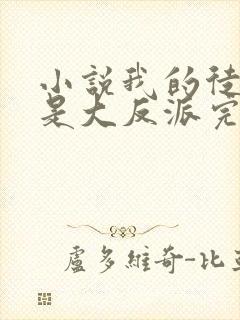 小說我的徒
是大反派完
盧多維奇-比亞